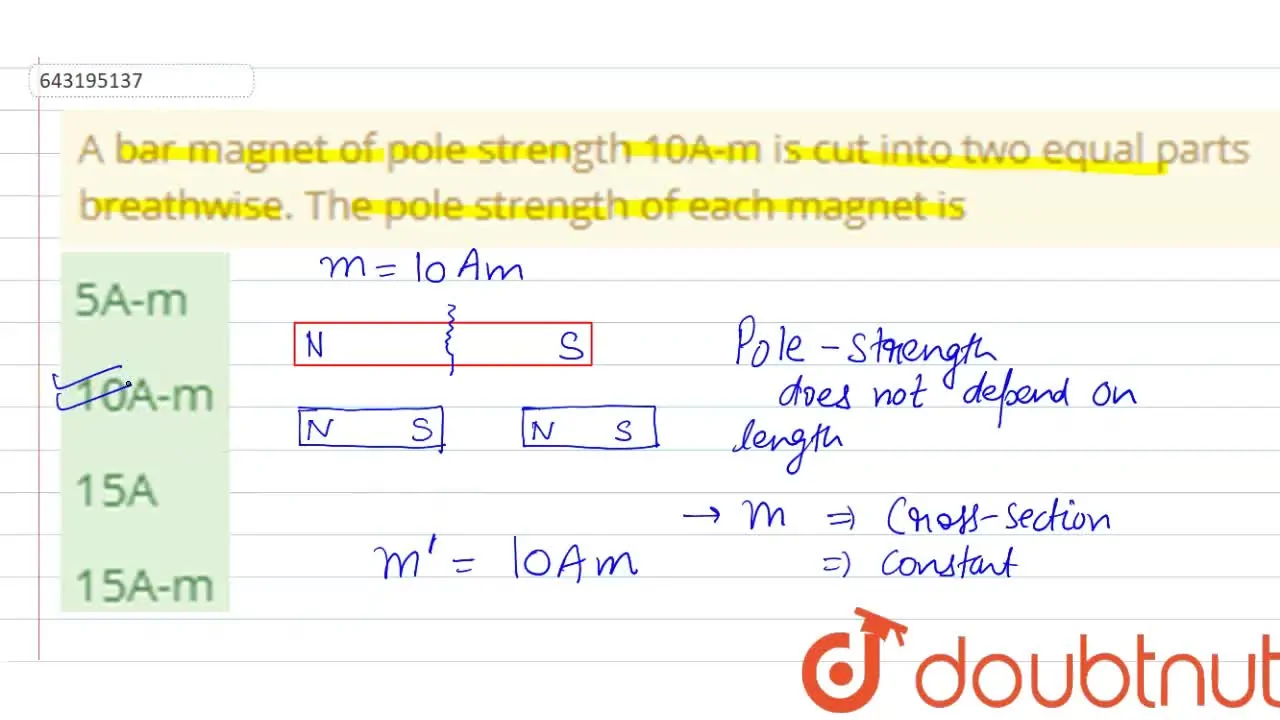 643195137
A bar magnet of pole strength 10A-m is cut into two equal parts
breathwise. The pole strength of each magnet is
5A-m
10A-m
15A
15A-m
m = 10 Am
N S
N S N S
m' = 10 Am
Pole - strength
does not depend on
length
→ m ⇒ Cross-section
⇒ constant
doubtnut